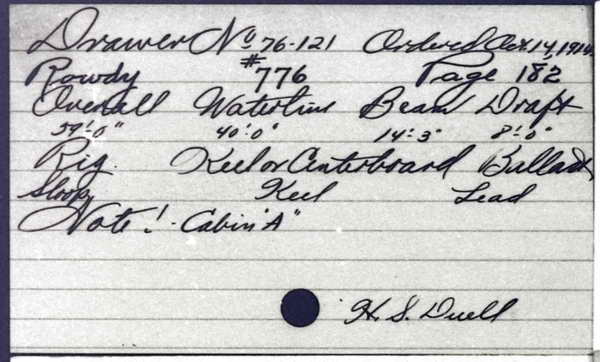 Drawer No 76-121 Ordered Oct. 14, 1915
Rowdy #776 Page 182
Overall Waterline Beam Draft
59'-0" 40'-0" 14'-3" 8'-0"
Rig. Keel or Centerboard Ballast
Sloop Keel Lead
Note! - Cabin "A"
H. S. Duell